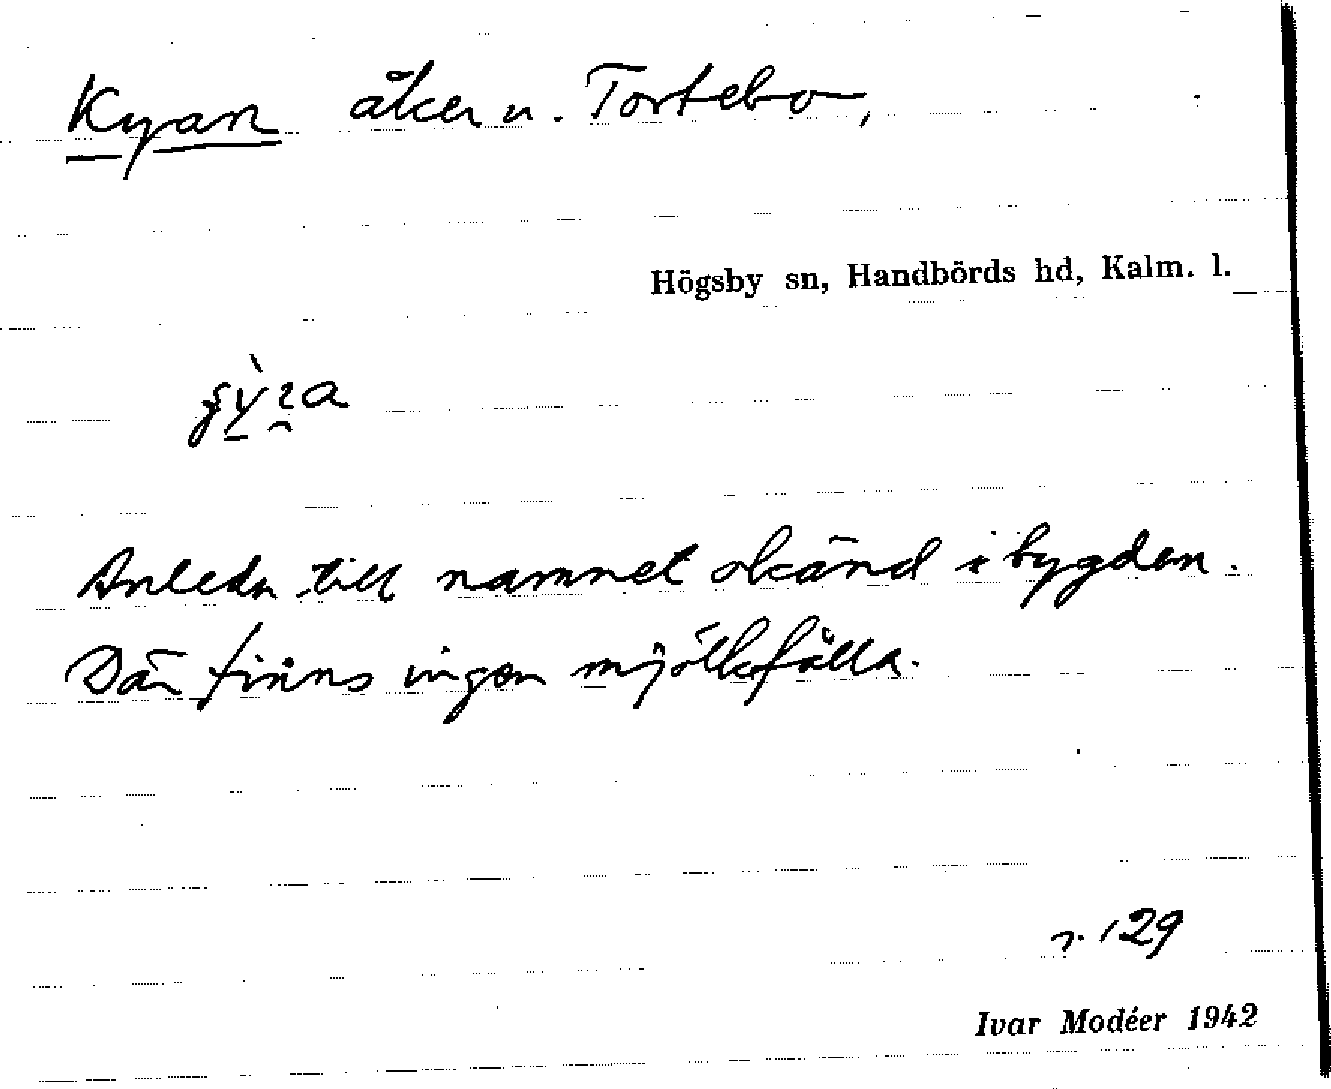 Kyan åker u. Tortebo,
Högsby sn, Handbörds hd, Kalm. l.
Anledn till namnet okänd i bygden.
Där finns ingen mjölkfålla.
129
Ivar Modéer 1942